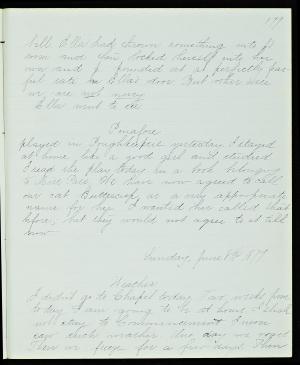 179
till Ella had thrown something into J
room and then locked herself into her
own and J. pounded at a perfectly
ful rate on Ella's door. But other wise
we are not noisy
Ella went to ice
Pinafore
played in Poughkeepsie yesterday. I stayed
at home like a good girl and studied
I read the play today in a book belonging
to Miss We have now agreed to call
our cat Buttercup as a very appropriate
name for her. I wanted her called that
before, but they would not agree to it till
now.
Sunday, June 8th 1879
Weather
I didn't go to Chapel today. Two weeks from
to day I am going to be at home. I shall
not stay to Commencement. I never
saw such weather. One day we roast
Then we freeze for a few days. Then